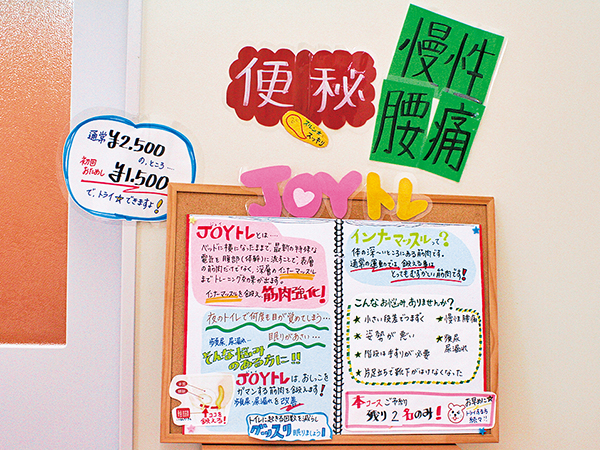 便秘
スルンデスッキリ
慢性
腰痛
通常 ¥2,500
の、ところ…
初回おためし ¥1,500
で、トライ☆できますよ!
JOYトレ
JOYトレとは…
ベッドに横になったままで、最新の特殊な
電気を腹部(体幹)に流すことで、表層
の筋肉だけでなく、深層のインナーマッスル
までトレーニング効果が出ます。
インナーマッスルを鍛え、筋肉強化!
夜のトイレで何度も目が覚めてしまう…
眠りがあさい…
頻尿、尿漏れ…
そんな悩みのある方に!!
JOYトレは、おしっこを
ガマンする筋肉を鍛えます!
頻尿、尿漏れを改善
ココを鍛える!
トイレに起きる回数を減らし
グッスリ眠りましょう!
インナーマッスルって?
体の深〜いところにある筋肉です。
通常の運動では、鍛える事は
とってもむずかしい筋肉です!
こんなお悩み、ありませんか?
★小さい段差でつまずく
★慢性腰痛
★姿勢が悪い
★頻尿 尿漏れ
★階段は手すりが必要
★片足立ちで靴下がはけなくなった
本コースご予約
残り2名のみ!
お早めに
トライする方
続々!!